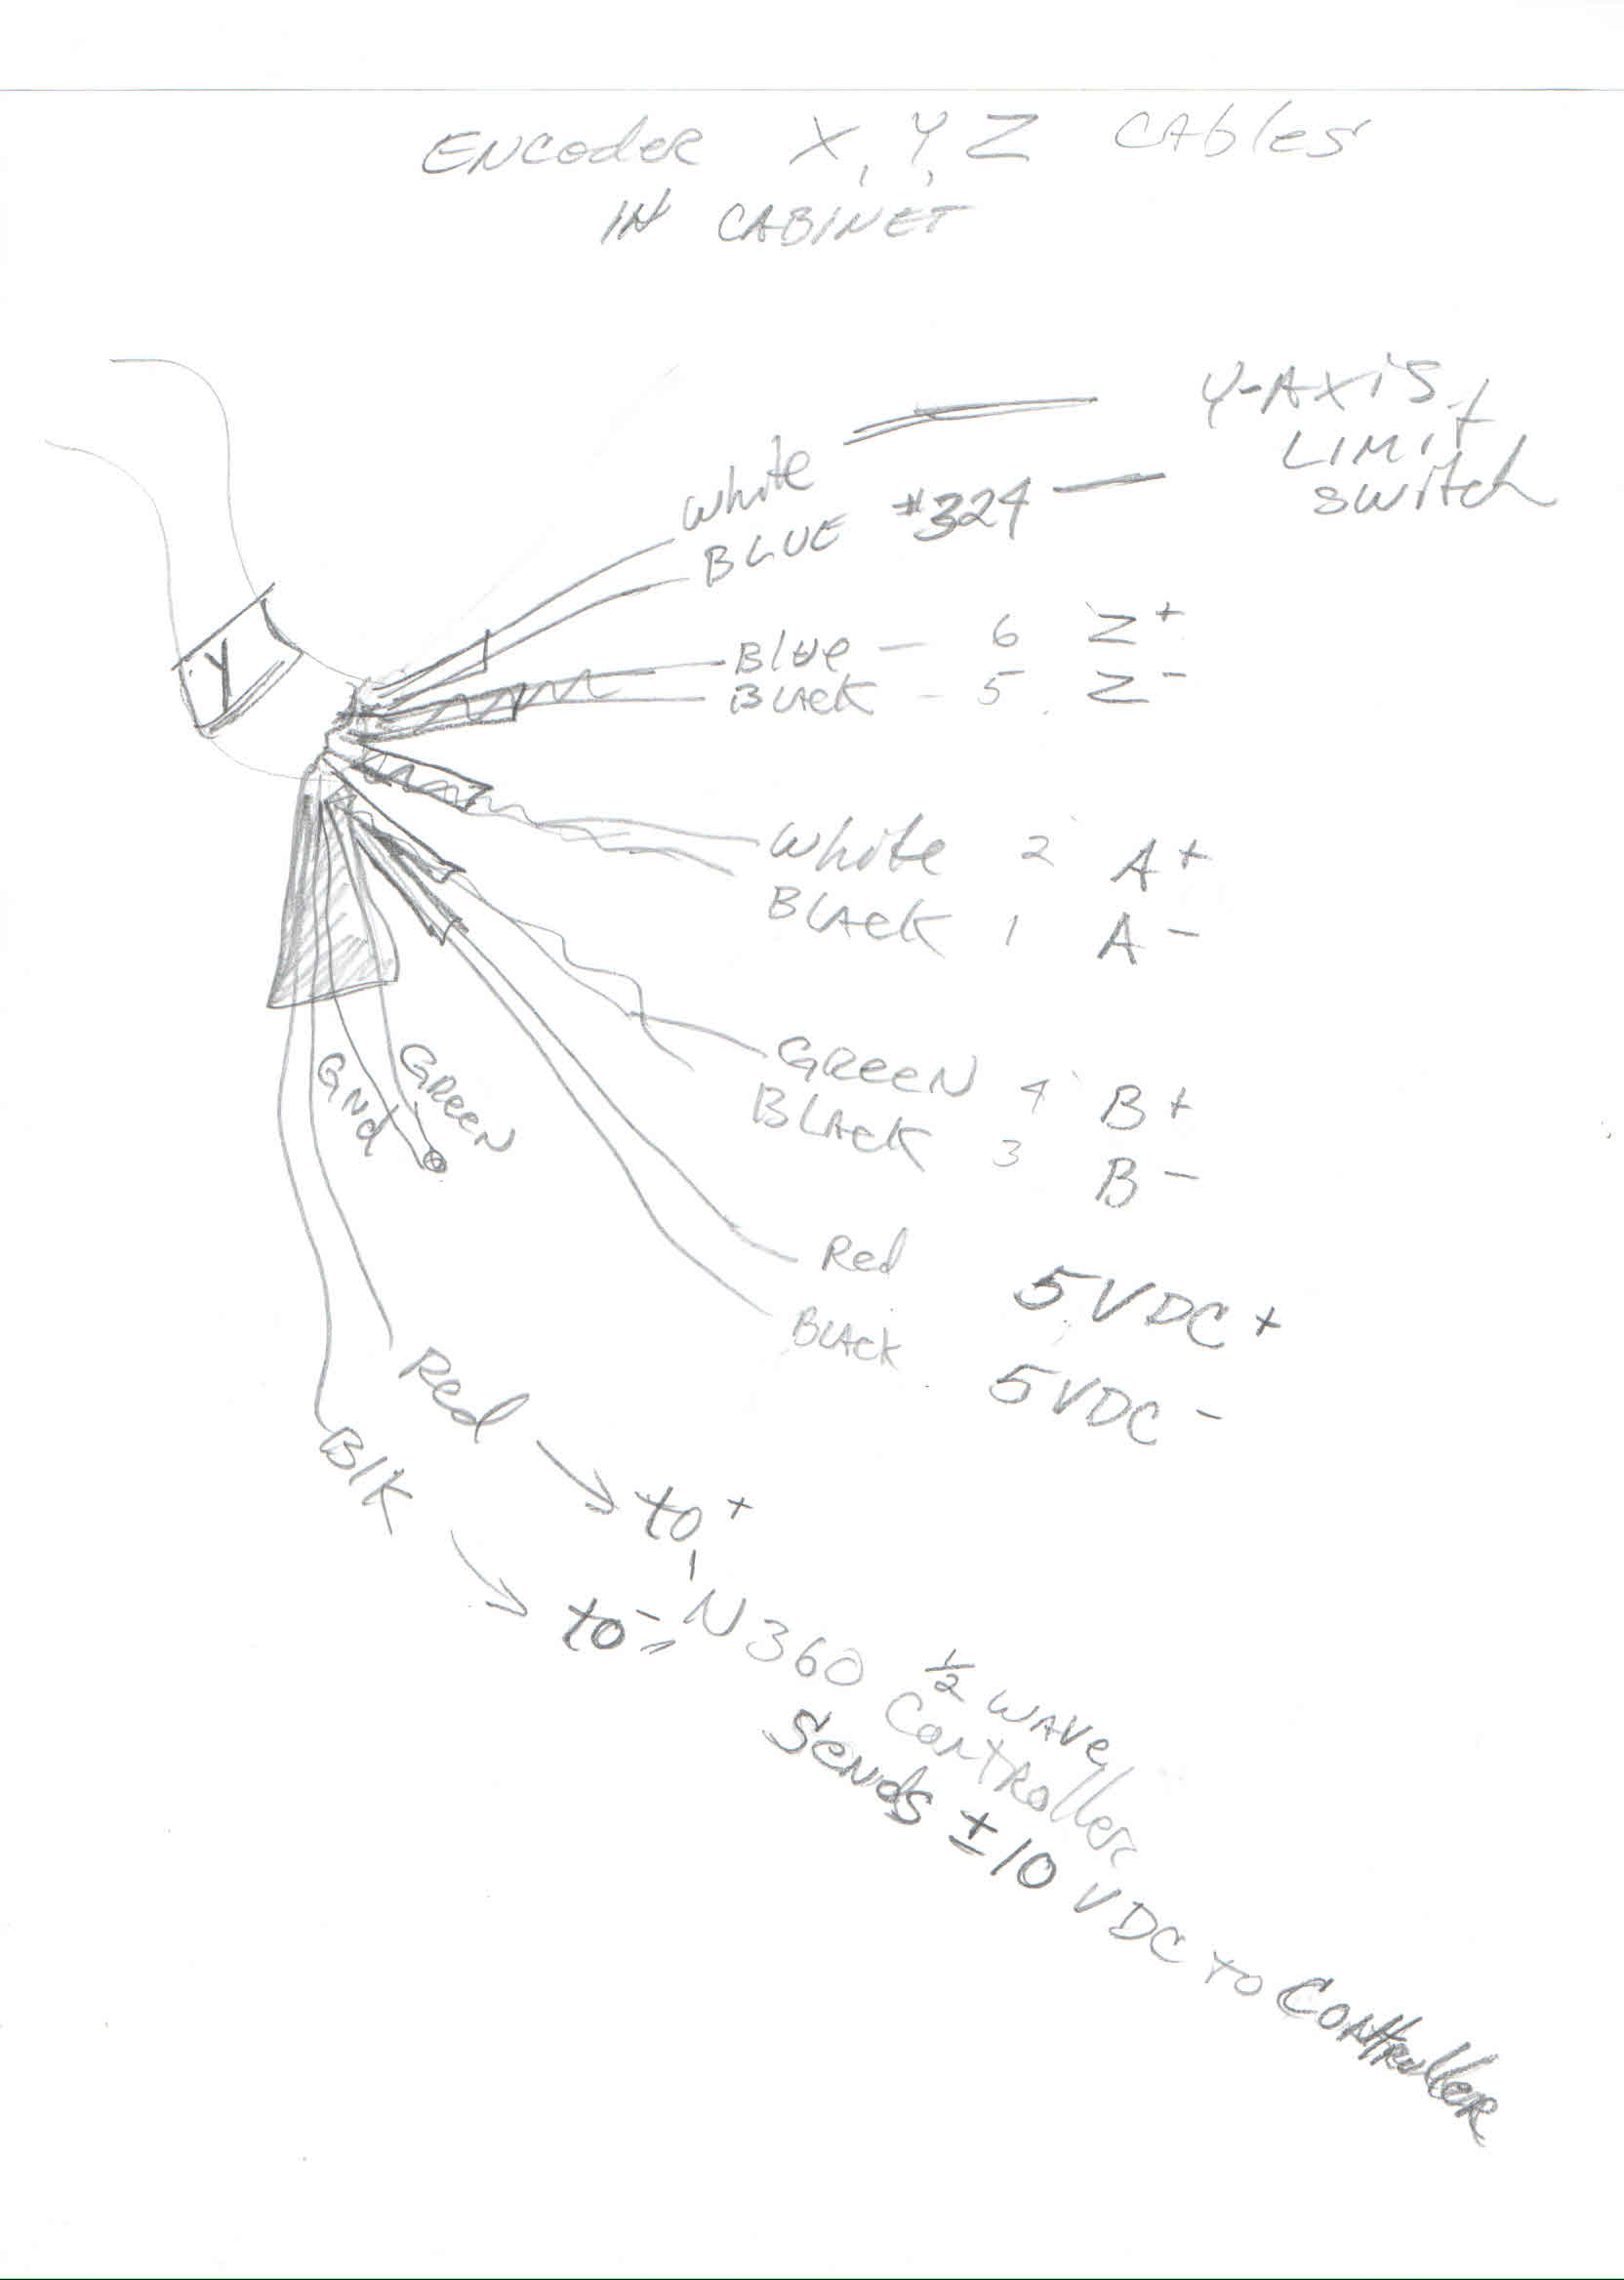 ENCODER X, Y, Z CABLES
IN CABINET
Y-AXIS +
LIMIT
SWITCH
White
BLUE #324
Blue - 6 Z+
BLACK - 5 Z-
Y
White 2 A+
BLACK 1 A-
GREEN 4 B+
BLACK 3 B-
GND
GREEN
Red 5VDC+
BLACK 5VDC-
Red
Blk
to +
to -
N360 1/2 WAVE
Controller
Sends ±10 VDC to Controller